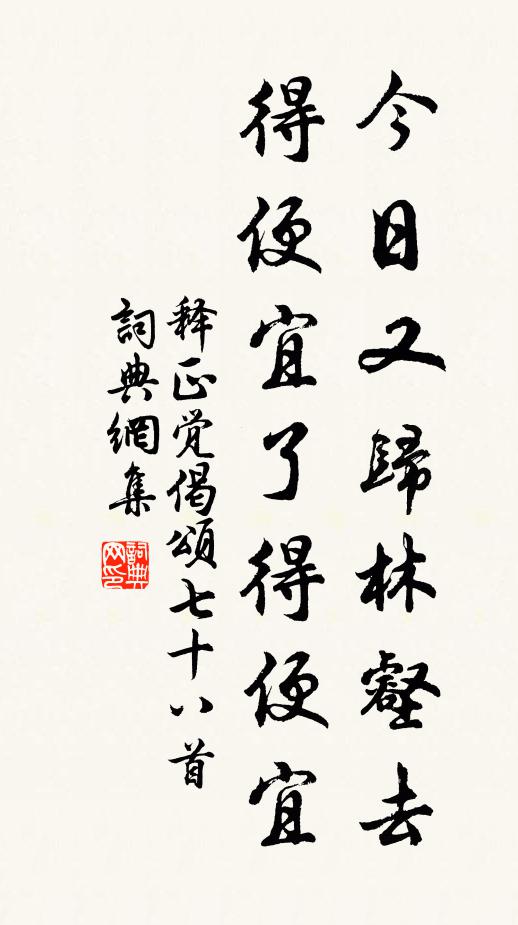 今日又歸林壑去
得便宜了得便宜
释正觉偈頌七十八首
詞典網集
詞典网印